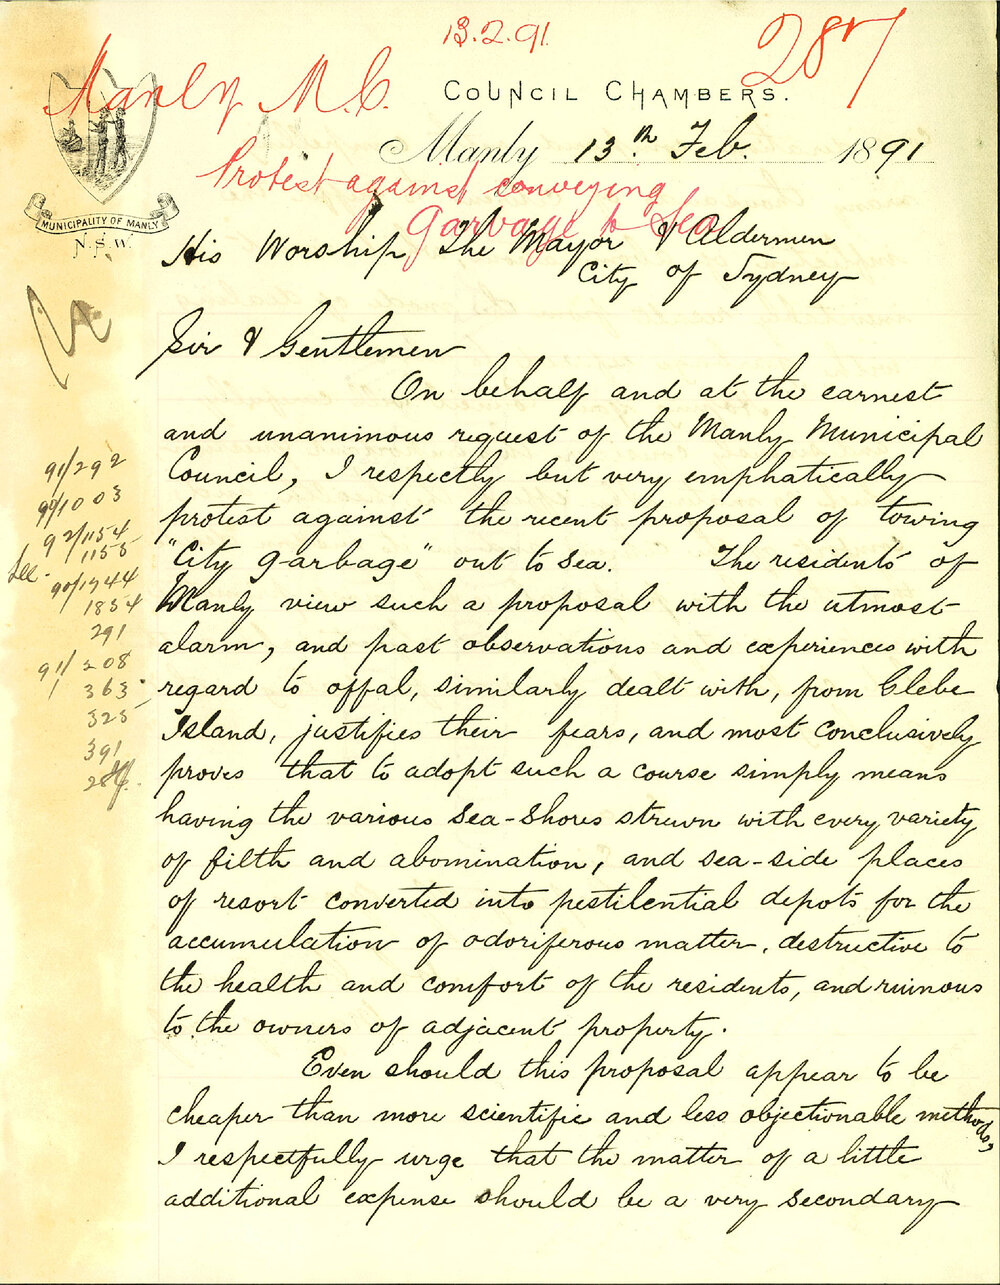 13.2.91.
287
Manly M.C.
COUNCIL CHAMBERS.
Manly 13th. Feb. 1891
Protest against conveying
Garbage to Sea
MUNICIPALITY OF MANLY
N.S.W.
His Worship, The Mayor & Aldermen
City of Sydney
Sir & Gentlemen
On behalf and at the earnest
and unanimous request of the Manly Municipal
Council, I respectly but very emphatically
protest against the recent proposal of towing
"City garbage" out to sea. The residents of
Manly view such a proposal with the utmost
alarm, and past observations and experiences with
regard to offal, similarly dealt with, from Glebe
Island, justifies their fears, and most conclusively
proves that to adopt such a course simply means
having the various sea-shores strewn with every variety
of filth and abomination, and sea-side places
of resort converted into pestilential depots for the
accumulation of odoriferous matter, destructive to
the health and comfort of the residents, and ruinous
to the owners of adjacent property.
Even should this proposal appear to be
cheaper than more scientific and less objectionable methods,
I respectfully urge that the matter of a little
additional expense should be a very secondary
91/292
90/1003
92/1154
1155
See 90/1744
1854
291
91/208
363
325
391